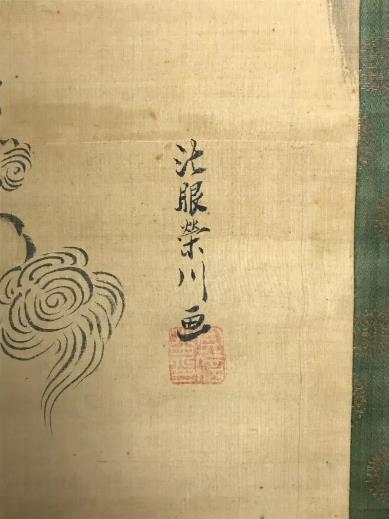 法眼榮川画